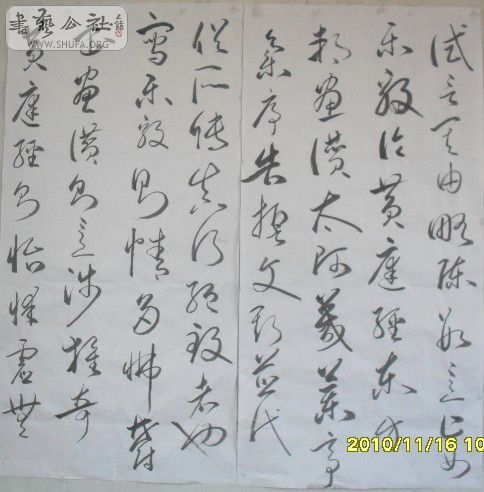 書藝公社
WWW.SHUFA.ORG
試言其由略陳數意止如
樂毅論黃庭經東方
朔畫讚太箴蘭亭
集序告誓文斯並代
俗所傳真行絕致者也
寫樂毅則情多怫鬱
書畫讚則意涉瑰奇
黃庭經則怡懌虛無
2010/11/16 10